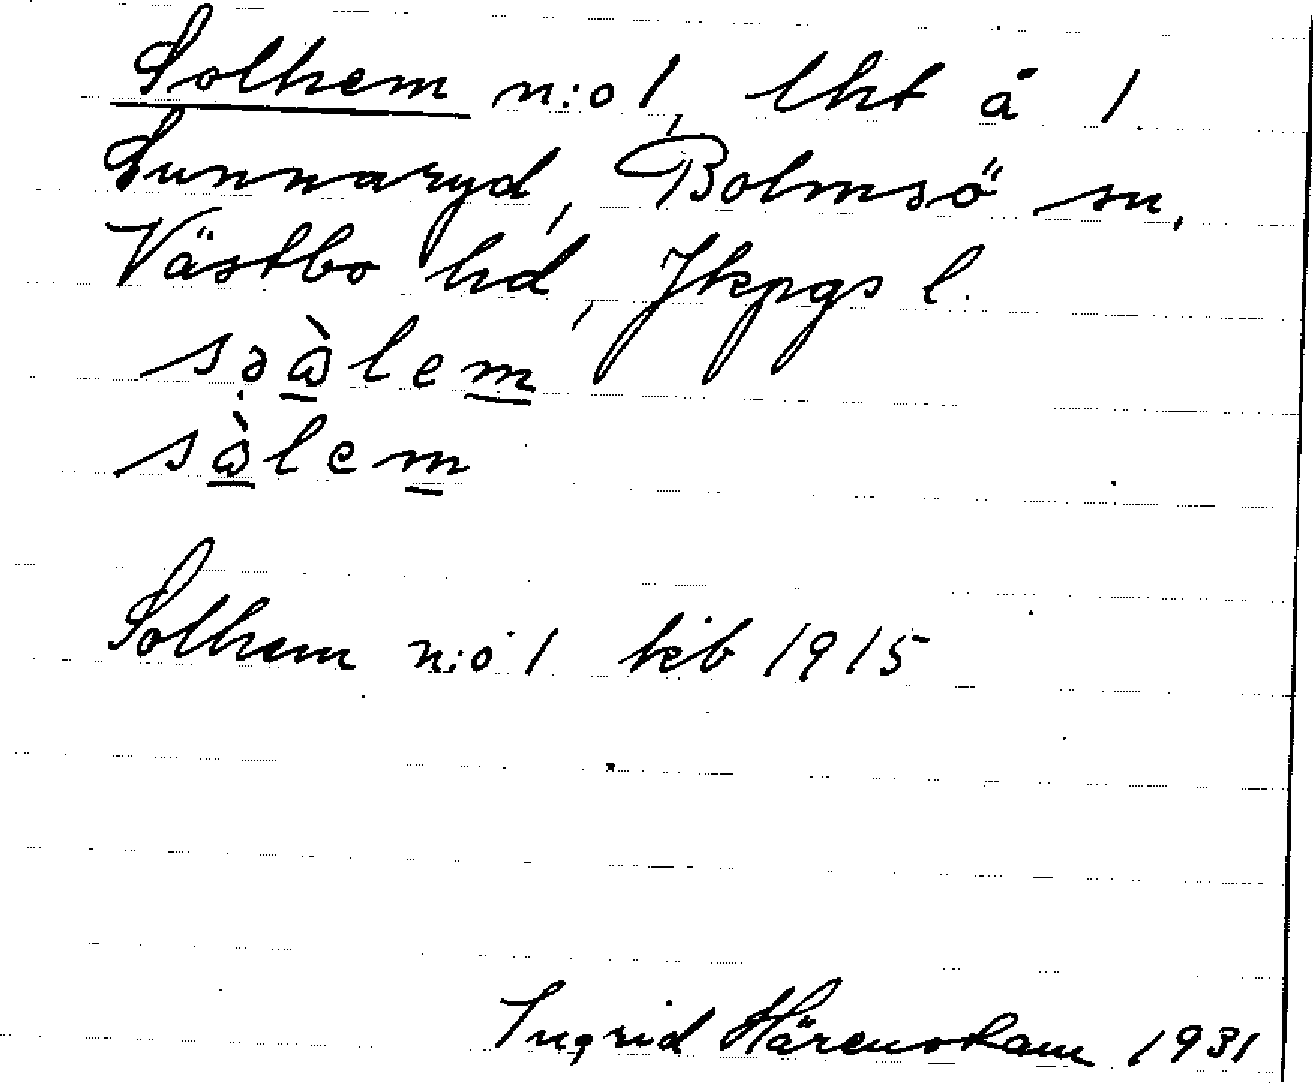 Solhem n:o 1, lht å 1
Sunnaryd, Bolmsö sn,
Västbo hd, Jkpgs l.
sə̣ὼlem
sὼlem
Solhem n:o 1 kb 1915
Ingrid Härenstam 1931